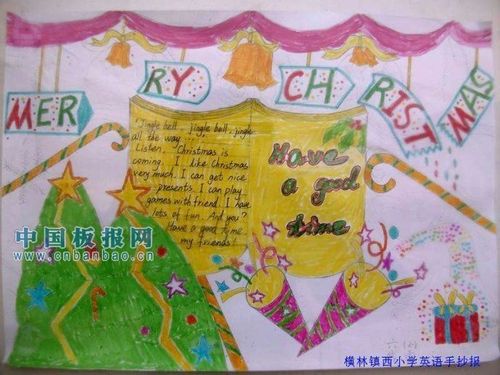 MERRY CHRISTMAS
"Jingle bell, jingle bell, jingle
all the way...
Listen, "Christmas is
coming. I like Christmas
very much. I can get nice
presents. I can play
games with friend. I have
lots of fun. And you?
Have a good time
my friends!
Have
a good
time
中国板报网
www.cnbanbao.cn
横林镇西小学英语手抄报